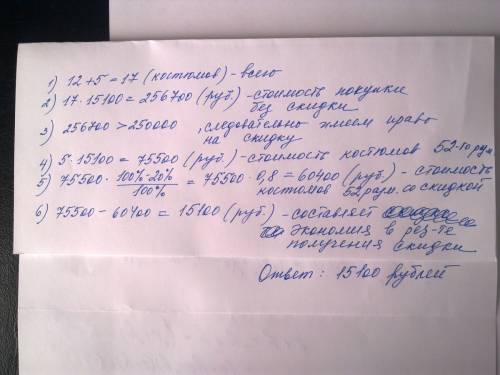 1) 12+5=17 (костюмов) - всего
2) 17·15100=256700 (руб.) - стоимость покупки
без скидки
3) 256700 > 250000 , следовательно имеем право
на скидку
4) 5·15100=75500 (руб.) - стоимость костюмов 52-го рум
5) 75500· 100%-20% / 100% = 75500·0,8=60400 (руб.) - стоимость
костюмов 52 разм. со скидкой
6) 75500-60400=15100 (руб.) - составляет
экономия в рез-те
получения скидки
Ответ: 15100 рублей